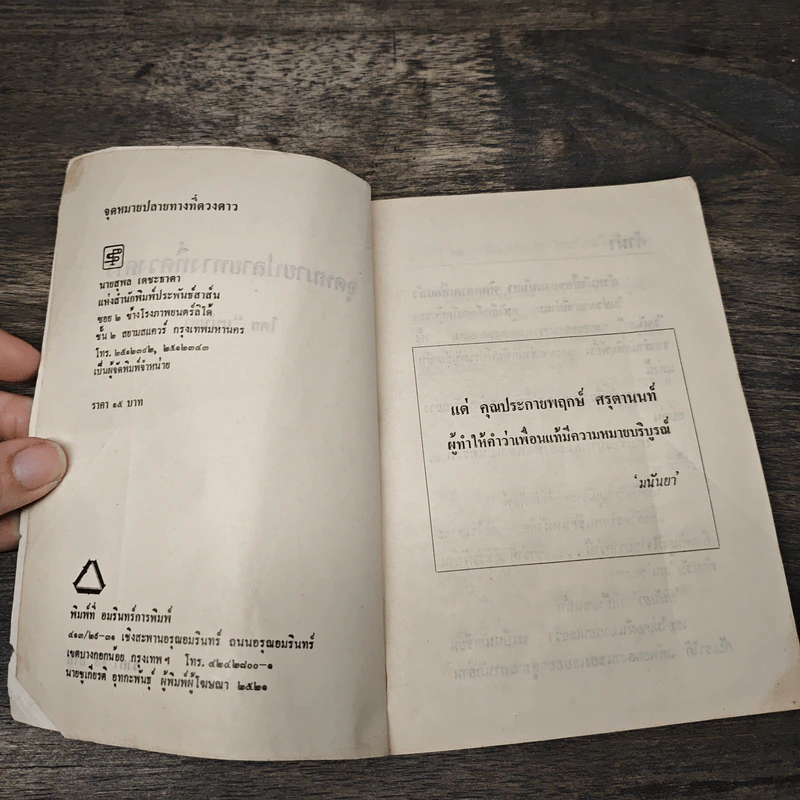 จุดหมายปลายทางที่ดวงดาว
นายสุพล เตชะธาดา
แห่งสำนักพิมพ์ประพันธ์สาส์น
ซอย ๒ ข้างโรงภาพยนตร์ลิโด้
ชั้น ๒ สยามสแควร์ กรุงเทพมหานคร
โทร. ๒๕๑๒๓๔๒, ๒๕๑๒๓๔๓
เป็นผู้จัดพิมพ์จำหน่าย
ราคา ๑๕ บาท
พิมพ์ที่ อมรินทร์การพิมพ์
๔๑๓/๒๗-๓๑ เชิงสะพานอรุณอมรินทร์ ถนนอรุณอมรินทร์
เขตบางกอกน้อย กรุงเทพฯ โทร. ๔๒๔๒๘๐๐-๑
นายชูเกียรติ อุทกะพันธุ์ ผู้พิมพ์ผู้โฆษณา ๒๕๒๑
แด่ คุณประกายพฤกษ์ ศรุตานนท์
ผู้ทำให้คำว่าเพื่อนแท้มีความหมายบริบูรณ์
'มนันยา'